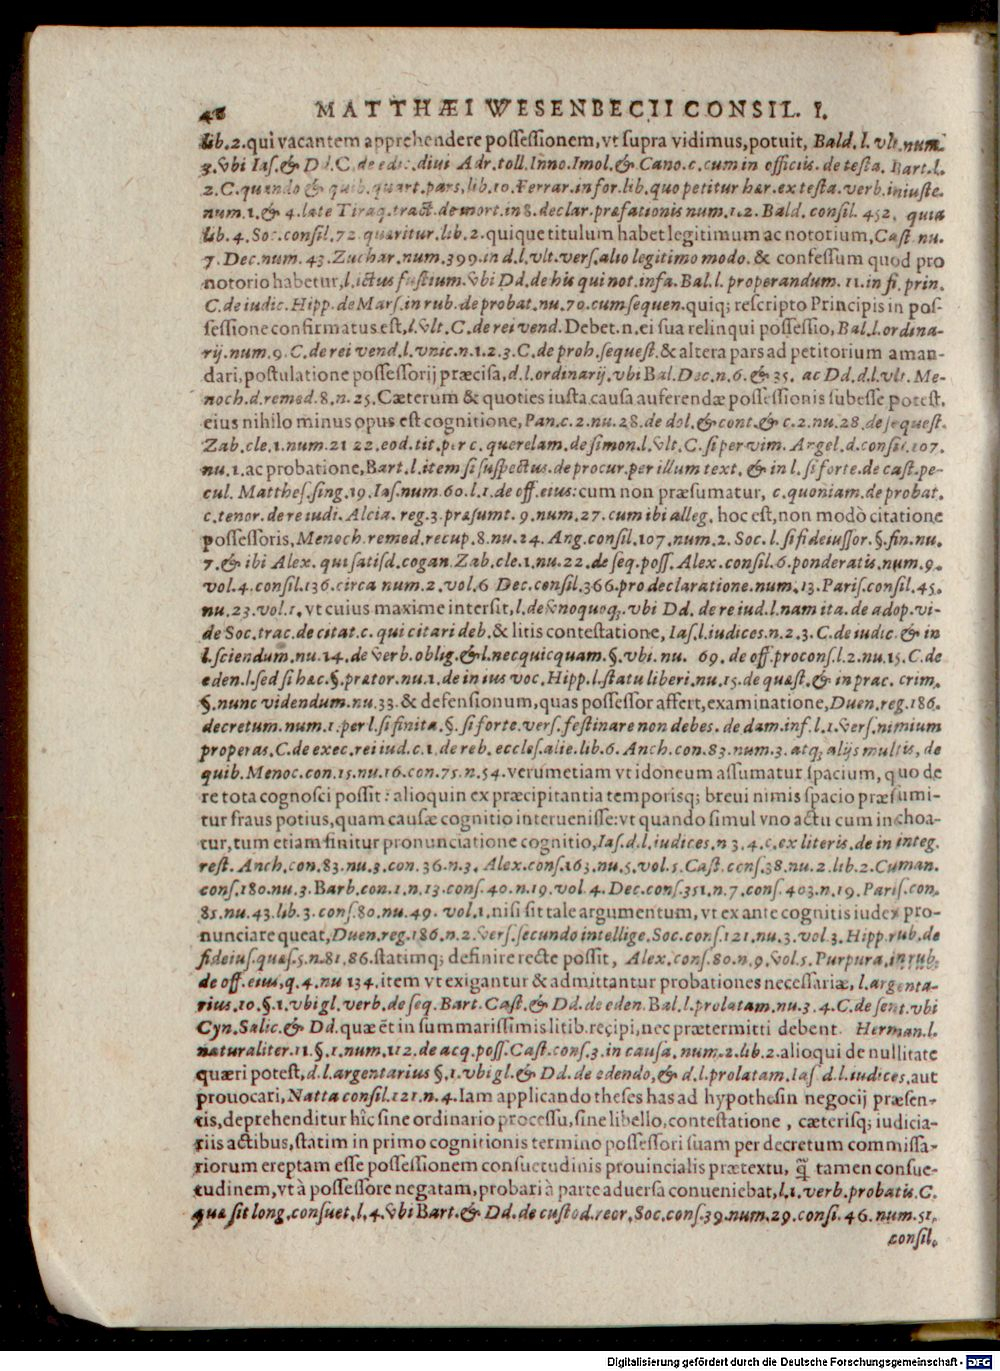 48 MATTHÆI WESENBECII CONSIL. I.
lib. 2. qui vacantem apprehendere possessionem, vt supra vidimus, potuit, Bald. l. vlt. num.
3. vbi Ias. & Dd. C. de edic. diui Adr. toll. Inno. Imol. & Cano. c. cum in officiis. de testa. Bart. l.
2. C. quando & quib. quart. pars, lib. 10. Ferrar. in for. lib. quo petitur hær. ex testa. verb. iniuste.
num. 1. & 4. late Tiraq. tract. de mort. in 8. declar. præfationis num. 1. 2. Bald. consil. 452. quia
lib. 4. Soc. consil. 72. quæritur. lib. 2. quique titulum habet legitimum ac notorium, Cast. nu.
7. Dec. num. 43. Zuchar. num. 399. in d. l. vlt. vers. alio legitimo modo. & confessum quod pro
notorio habetur, l. ictus fustium. vbi Dd. de his qui not. infa. Bal. l. properandum. 11. in fi. prin.
C. de iudic. Hipp. de Mars. in rub. de probat. nu. 70. cum sequen. quiq; rescripto Principis in pos-
sessione confirmatus est, l. vlt. C. de rei vend. Debet. n. ei sua relinqui possessio, Bal. l. ordina-
rij. num. 9. C. de rei vend. l. vnic. n. 1. 2. 3. C. de proh. sequest. & altera pars ad petitorium aman-
dari, postulatione possessorij præcisa, d. l. ordinarij. vbi Bal. Dec. n. 6. & 35. ac Dd. d. l. vlt. Me-
noch. d. remed. 8. n. 25. Cæterum & quoties iusta causa auferendæ possessionis subesse potest,
eius nihilo minus opus est cognitione, Pan. c. 2. nu. 28. de dol. & cont. & c. 2. nu. 28. de sequest.
Zab. cle. 1. num. 21 22. eod. tit. per c. querelam. de simon. l. vlt. C. si per vim. Angel. d. consil. 107.
nu. 1. ac probatione, Bart. l. item si suspectus. de procur. per illum text. & in l. si forte. de cast. pe-
cul. Matthes. sing. 19. Ias. num. 60. l. 1. de off. eius: cum non præsumatur, c. quoniam. de probat.
c. tenor. de re iudi. Alcia. reg. 3. præsumt. 9. num. 27. cum ibi alleg. hoc est, non modò citatione
possessoris, Menoch. remed. recup. 8. nu. 24. Ang. consil. 107. num. 2. Soc. l. si fideiussor. §. fin. nu.
7. & ibi Alex. qui satisd. cogan. Zab. cle. 1. nu. 22. de seq. poss. Alex. consil. 6. ponderatis. num. 9.
vol. 4. consil. 136. circa num. 2. vol. 6 Dec. consil. 366. pro declaratione. num. 13. Paris. consil. 45.
nu. 23. vol. 1. vt cuius maxime intersit, l. de vnoquoq;. vbi Dd. de re iud. l. nam ita. de adop. vi-
de Soc. trac. de citat. c. qui citari deb. & litis contestatione, Ias. l. iudices. n. 2. 3. C. de iudic. & in
l. sciendum. nu. 14. de verb. oblig. & l. nec quicquam. §. vbi. nu. 69. de off. procons. l. 2. nu. 15. C. de
eden. l. sed si hac. §. prætor. nu. 1. de in ius voc. Hipp. l. statu liberi. nu. 15. de quæst. & in prac. crim.
§. nunc videndum. nu. 33. & defensionum, quas possessor affert, examinatione, Duen. reg. 186.
decretum. num. 1. per l. si finita. §. si forte. vers. festinare non debes. de dam. inf. l. 1. vers. nimium
properas. C. de exec. rei iud. c. 1. de reb. eccles. alie. lib. 6. Anch. con. 83. num. 3. atq; alijs multis, de
quib. Menoc. con. 15. nu. 16. con. 75. n. 54. verumetiam vt idoneum assumatur spacium, quo de
re tota cognosci possit: alioquin ex præcipitantia temporisq; breui nimis spacio præsumi-
tur fraus potius, quam causæ cognitio interuenisse: vt quando simul vno actu cum inchoa-
tur, tum etiam finitur pronunciatione cognitio, Ias. d. l. iudices. n 3. 4. c. ex literis. de in integ.
rest. Anch. con. 83. nu. 3. con. 36. n. 3. Alex. cons. 163. nu. 5. vol. 5. Cast. cons. 38. nu. 2. lib. 2. Cuman.
cons. 180. nu. 3. Barb. con. 1. n. 13. cons. 40. n. 19. vol. 4. Dec. cons. 351. n. 7. cons. 403. n. 19. Paris. con.
85. nu. 43. lib. 3. cons. 80. nu. 49. vol. 1. nisi sit tale argumentum, vt ex ante cognitis iudex pro-
nunciare queat, Duen. reg. 186. n. 2. vers. secundo intellige. Soc. cons. 121. nu. 3. vol. 3. Hipp. rub. de
fideius. quæs. 5. n. 81. 86. statimq; definire recte possit, Alex. cons. 80. n. 9. vol. 5. Purpura. in rub.
de off. eius, q. 4. nu 134. item vt exigantur & admittantur probationes necessariæ, l. argenta-
rius. 10. §. 1. vbi gl. verb. de seq. Bart. Cast. & Dd. de eden. Bal. l. prolatam. nu. 3. 4. C. de sent. vbi
Cyn. Salic. & Dd. quæ ēt in summarissimis litib. reçipi, nec prætermitti debent. Herman. l.
naturaliter. 11. §. 1. num. 112. de acq. poss. Cast. cons. 3. in causa. num. 2. lib. 2. alioqui de nullitate
quæri potest, d. l. argentarius §. 1. vbi gl. & Dd. de edendo, & d. l. prolatam. Ias d. l. iudices. aut
prouocari, Natta consil. 121. n. 4. Iam applicando theses has ad hypothesin negocij præsen-
tis, deprehenditur hîc sine ordinario processu, sine libello, contestatione, cæterisq; iudicia-
riis actibus, statim in primo cognitionis termino possessori suam per decretum commissa-
riorum ereptam esse possessionem consuetudinis prouincialis prætextu, q̃ tamen consue-
tudinem, vt à possessore negatam, probari à parte aduersa conueniebat, l. 1. verb. probatis. C.
quæ sit long. consuet. l. 4. vbi Bart. & Dd. de custod. reor. Soc. cons. 39. num. 29. consi. 46. num. 51.
consil.
Digitalisierung gefördert durch die Deutsche Forschungsgemeinschaft - DFG